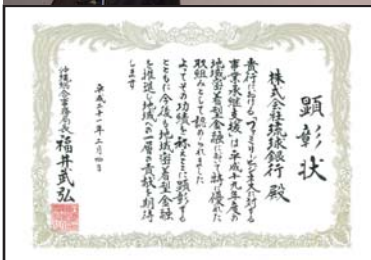 顕彰状
株式会社琉球銀行 殿
貴行における「ファミリービジネスに対する
事業承継支援」は平成十九年度の
地域密着型金融において特に優れた
取組みとして認められました
よってその功績を称えここに顕彰する
とともに今後も地域密着型金融
を推進し地域への一層の貢献を期待
します
平成二十一年二月四日
沖縄総合事務局長 福井武弘